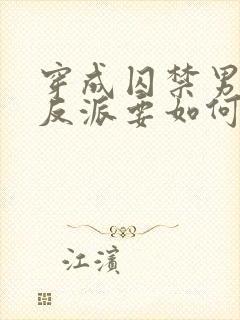 穿成囚禁男
反派要如何
江濱